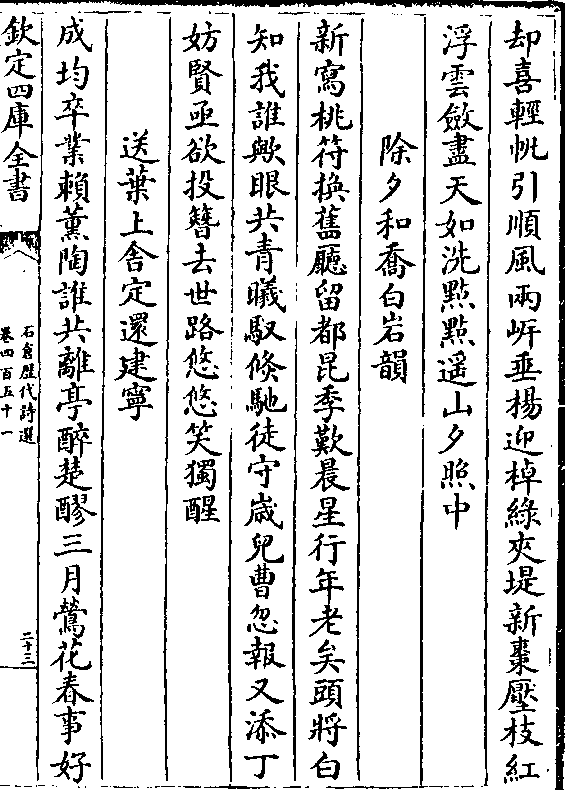 却喜輕帆引順風兩岸垂楊迎棹綠夾堤新棗壓枝紅
浮雲斂盡天如洗點點遥山夕照中
除夕和喬白岩韻
新寫桃符換舊廳留都昆季歎晨星行年老矣頭將白
知我誰歟眼共青曦馭倐馳徒守嵗兒曹忽報又添丁
妨賢亟欲投簪去世路悠悠笑獨醒
送葉上舍定還建寧
成均卒業賴薫陶誰共離亭醉楚醪三月鶯花春事好
欽定四庫全書
石倉歴代詩選
卷四百五十一
二十三